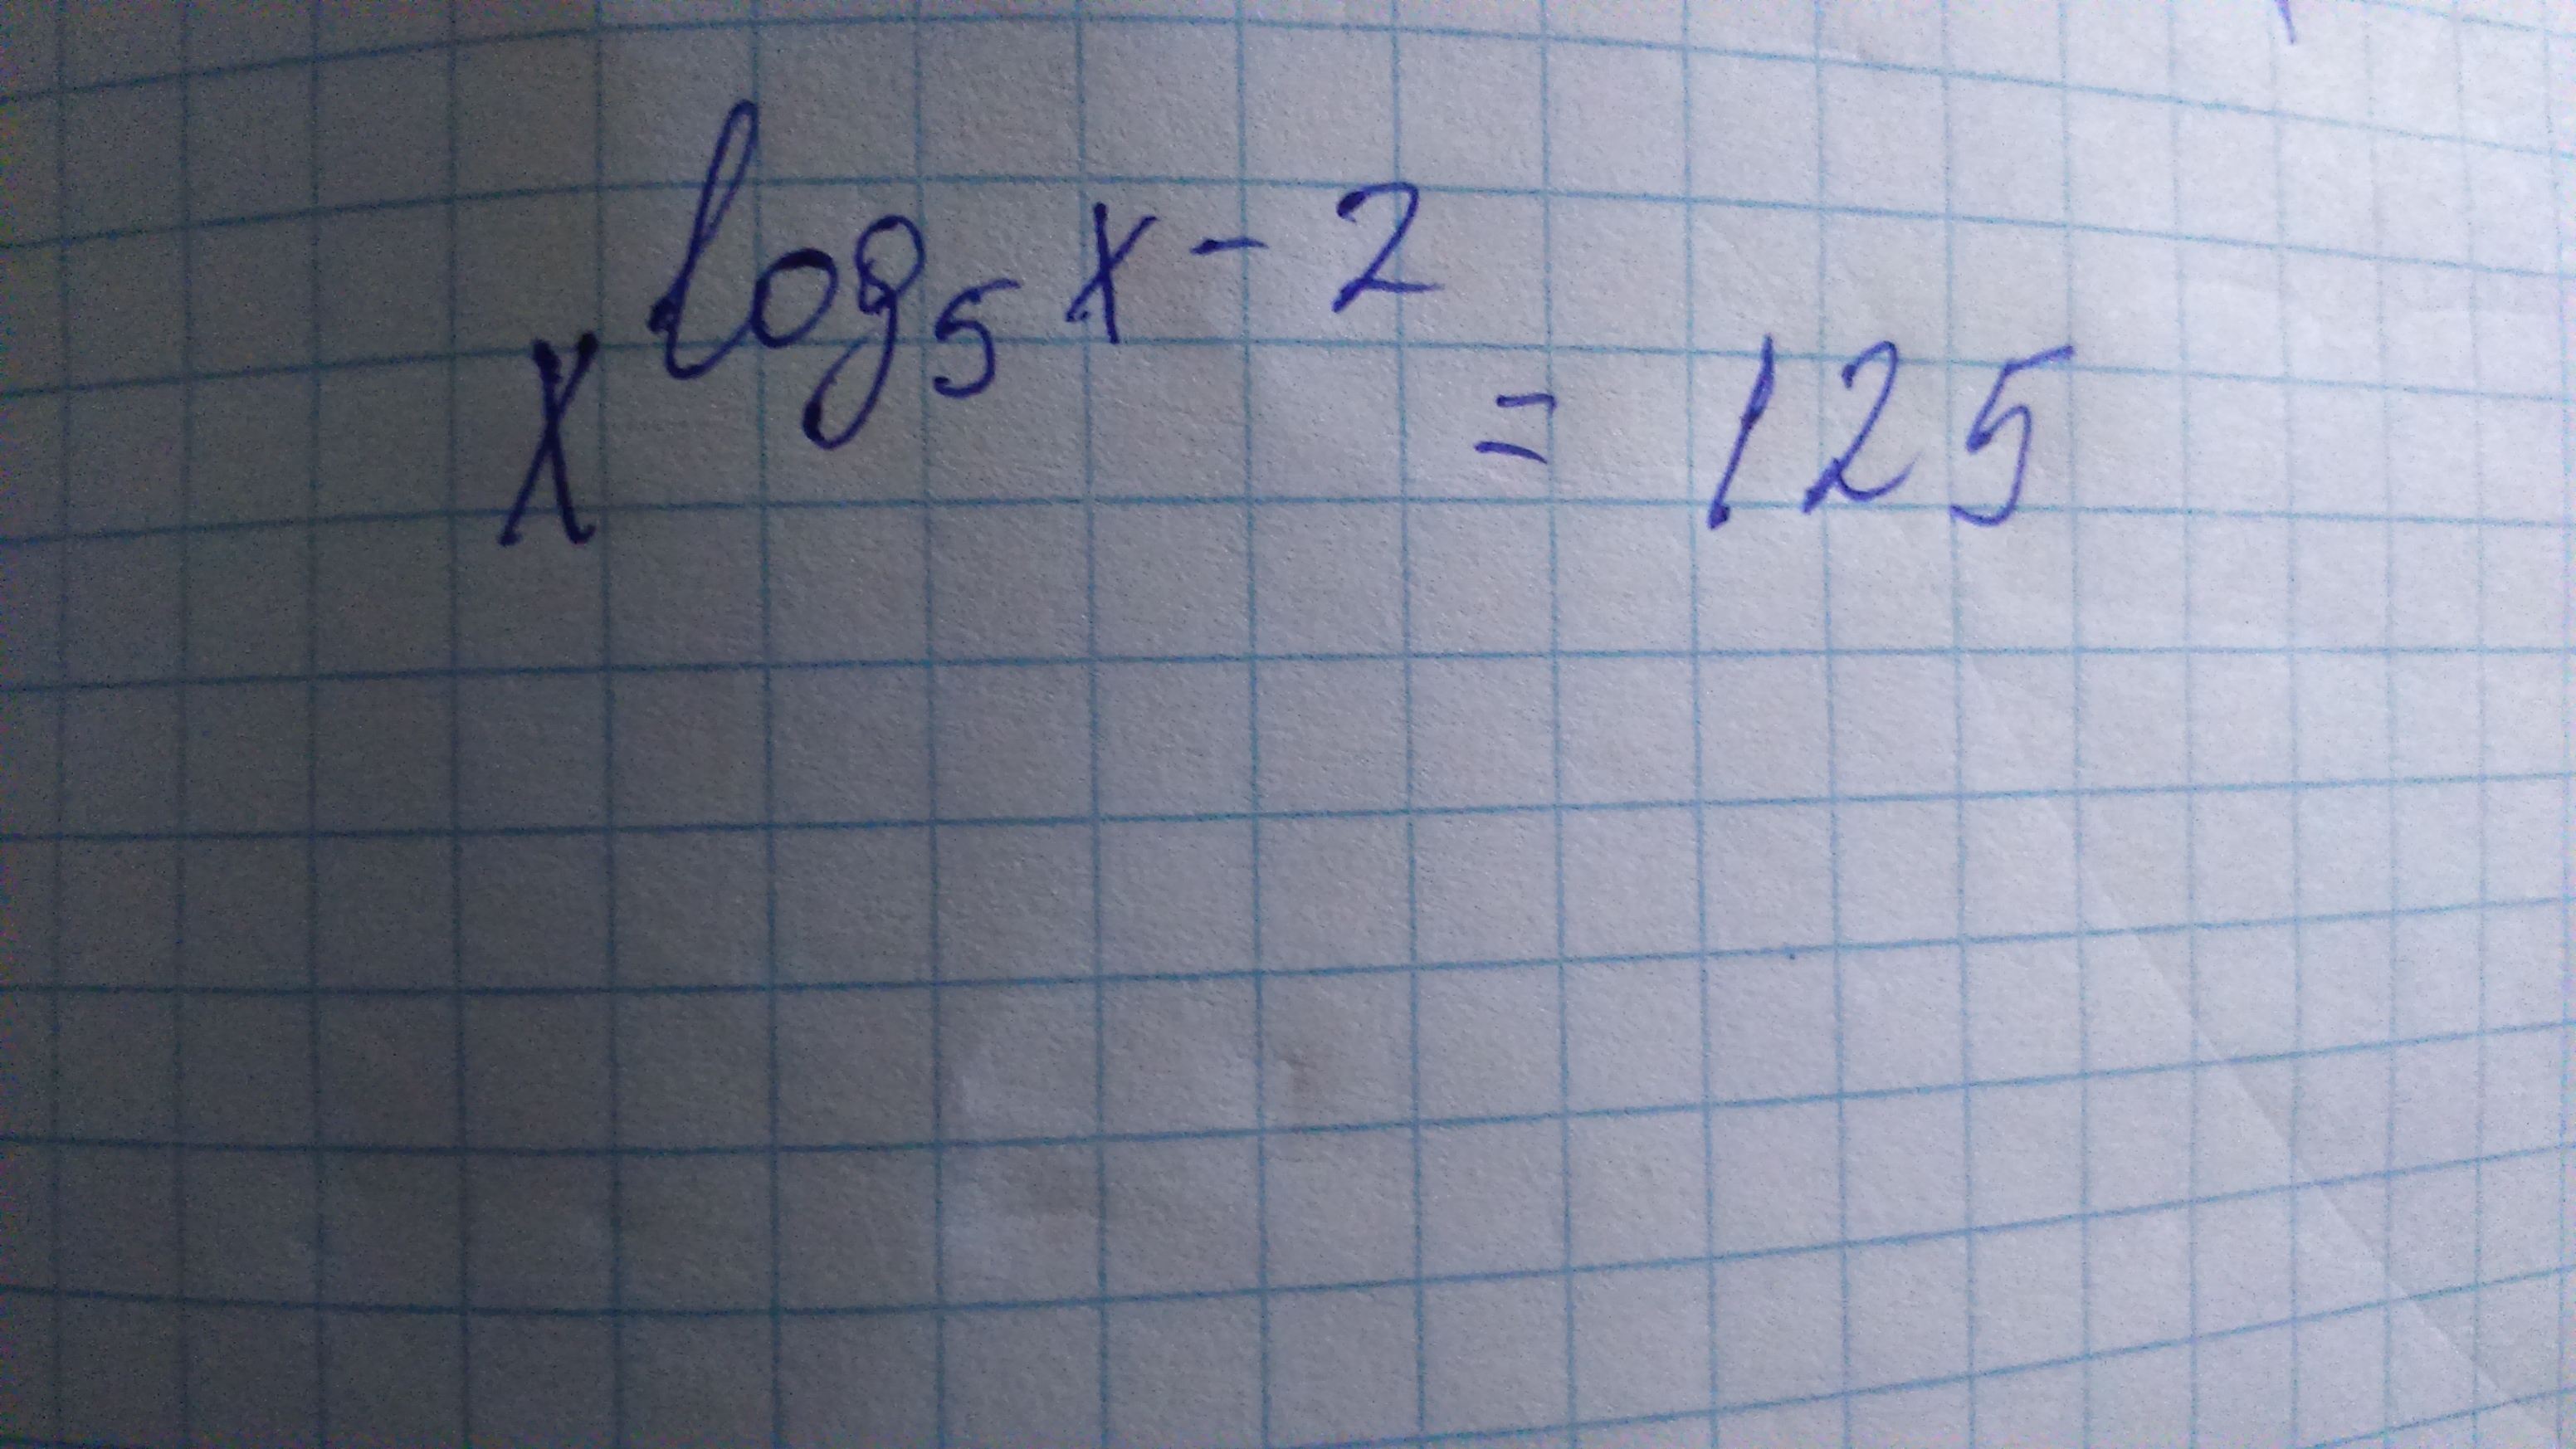 x^{log_5 x - 2} = 125